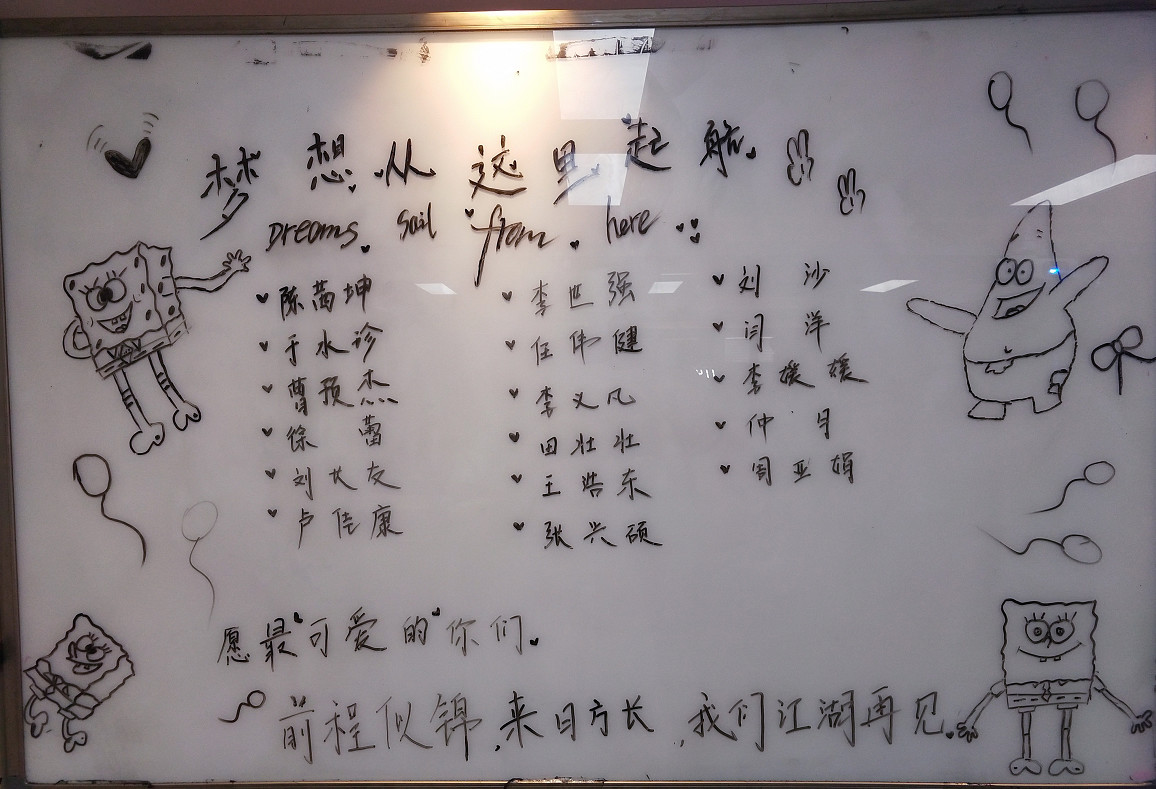 梦想从这里起航
Dreams sail from here
陈茜坤
于水诊
曹预杰
徐蕾
刘长友
卢佳康
李世强
任伟健
李义凡
田壮壮
王浩东
张兴硕
刘沙
闫洋
李媛媛
仲月
周亚娟
愿最"可爱的"你们.
前程似锦,来日方长,我们江湖再见.